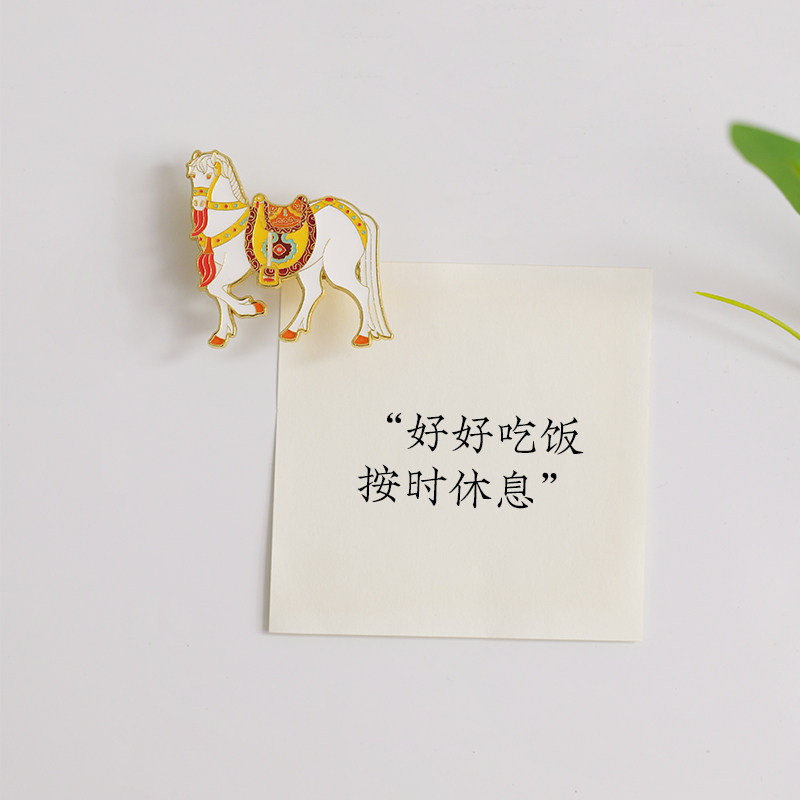 “好好吃饭
按时休息”